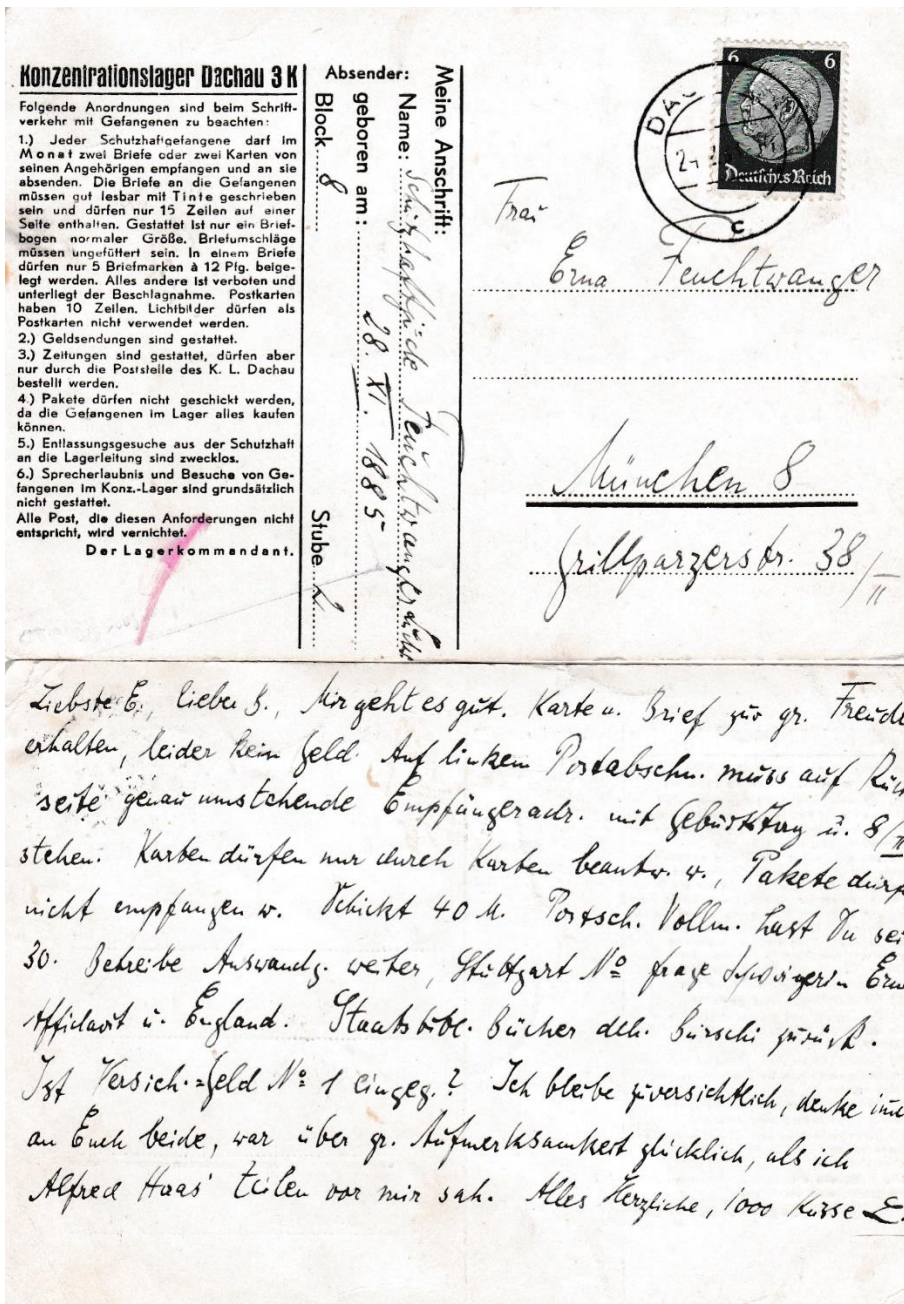 Konzentrationslager Dachau 3 K
Folgende Anordnungen sind beim Schrift-
verkehr mit Gefangenen zu beachten:
1.) Jeder Schutzhaftgefangene darf im
Monat zwei Briefe oder zwei Karten von
seinen Angehörigen empfangen und an sie
absenden. Die Briefe an die Gefangenen
müssen gut lesbar mit Tinte geschrieben
sein und dürfen nur 15 Zeilen auf einer
Seite enthalten. Gestattet ist nur ein Brief-
bogen normaler Größe. Briefumschläge
müssen ungefüttert sein. In einem Briefe
dürfen nur 5 Briefmarken à 12 Pfg. beige-
legt werden. Alles andere ist verboten und
unterliegt der Beschlagnahme. Postkarten
haben 10 Zeilen. Lichtbilder dürfen als
Postkarten nicht verwendet werden.
2.) Geldsendungen sind gestattet.
3.) Zeitungen sind gestattet, dürfen aber
nur durch die Poststelle des K. L. Dachau
bestellt werden.
4.) Pakete dürfen nicht geschickt werden,
da die Gefangenen im Lager alles kaufen
können.
5.) Entlassungsgesuche aus der Schutzhaft
an die Lagerleitung sind zwecklos.
6.) Sprecherlaubnis und Besuche von Ge-
fangenen im Konz.-Lager sind grundsätzlich
nicht gestattet.
Alle Post, die diesen Anforderungen nicht
entspricht, wird vernichtet.
Der Lagerkommandant.
Absender:
Meine Anschrift:
Name: Schutzhaftjude Feuchtwanger
geboren am: 28. XI. 1885
Block 8 Stube 2
6 6
Deutsches Reich
DAC
24
c
Frau
Erna Feuchtwanger
München 8
Grillparzerstr. 38/II
Liebste E., lieber B., Mir geht es gut. Karte u. Brief zur gr. Freude
erhalten, leider kein Geld. Auf linkem Postabschn. muss auf Rück
seite genau umstehende Empfängeradr. mit Geburtstag u. 8/II
stehen. Karten dürfen nur durch Karten beantw. w., Pakete dürf
nicht empfangen w. Schickt 40 M. Postsch. Vollm. hast Du sei
30. Betreibe Auswandg. weiter, Stuttgart No frage Ern
Affidavit u. England. Staatsbibl. Bücher dch. Burschi zurück.
Ist Versich.=Geld No 1 eingeg.? Ich bleibe zuversichtlich, denke im
an Euch beide, war über gr. Aufmerksamkeit glücklich, als ich
Alfred Haas' Zeilen vor mir sah. Alles Herzliche, 1000 Küsse L.